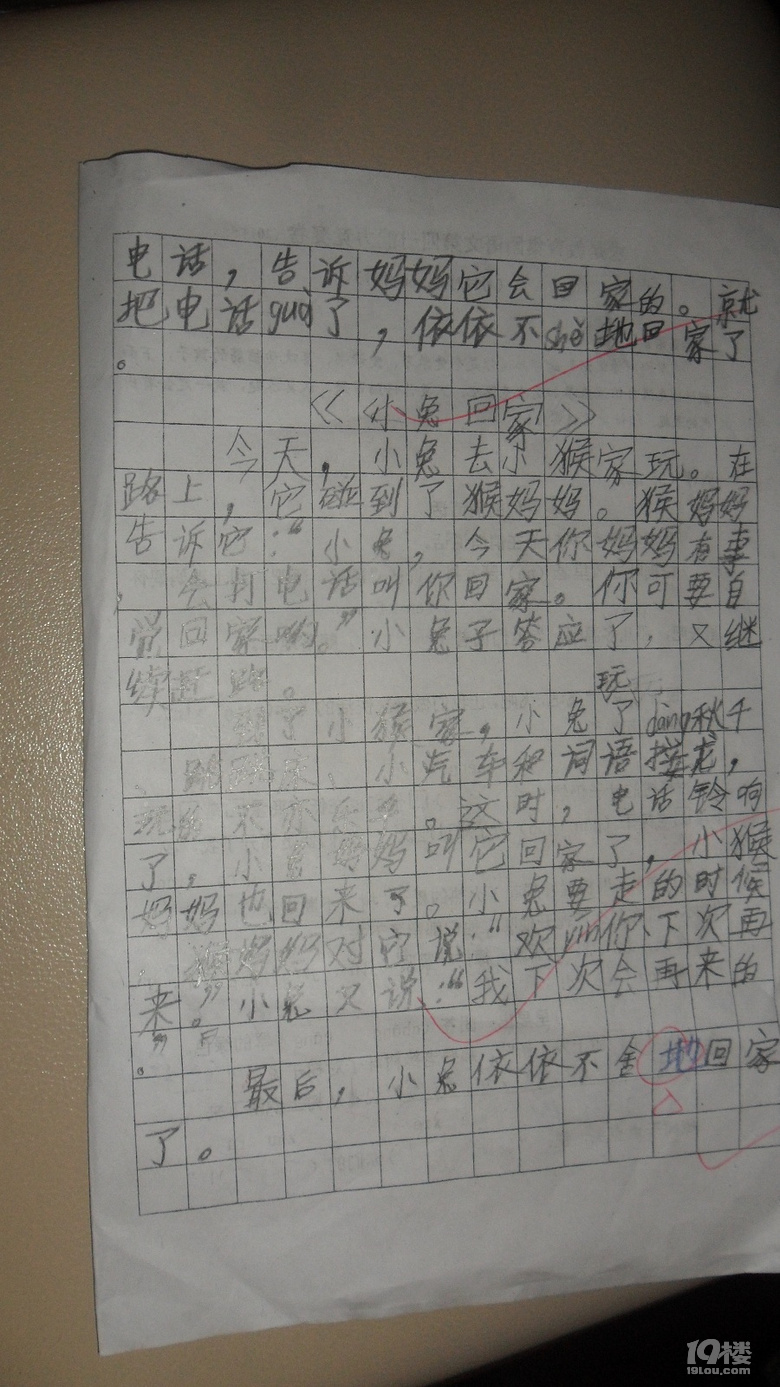 电话，告诉妈妈它会回家的。就
把电话guà了，依依不shě地回家了
。
《小兔回家》
今天，小兔去小猴家玩。在
路上，它碰到了猴妈妈。猴妈妈
告诉它：“小兔，今天你妈妈有事
，会打电话叫你回家。你可要自
觉回家哟。”小兔子答应了，又继
续赶路。
玩
到了小猴家，小兔了dàng秋千
、跳跳床、小汽车和词语接龙，
玩的不亦乐乎。这时，电话铃响
了，小兔妈妈叫它回家了，小猴
妈妈也回来了。小兔要走的时候
，猴妈妈对它说：“欢yín你下次再
来。”小兔又说：“我下次会再来的
”。
最后，小兔依依不舍地回家
了。
19楼
19lou.com